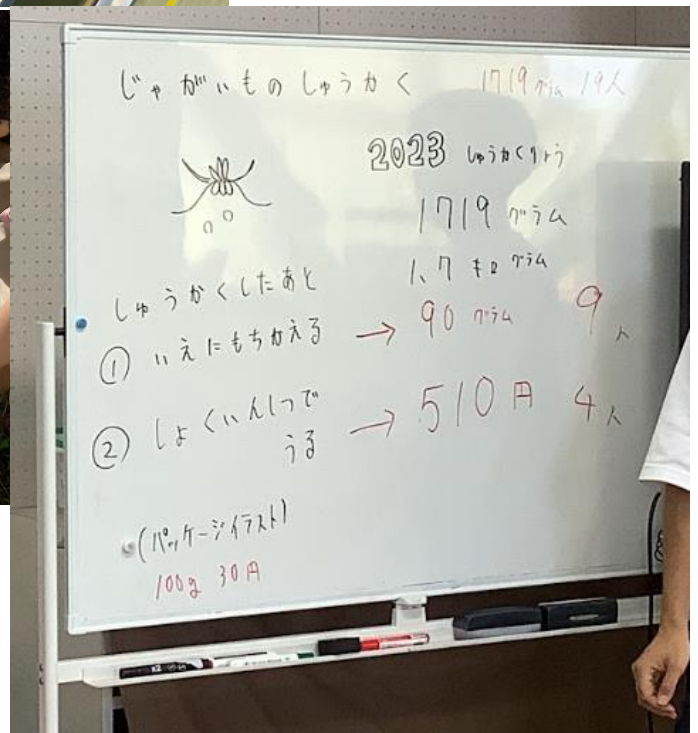 じゃがいものしゅうかく 1719グラム 19人
2023 しゅうかくりょう
1719 グラム
1.7 キログラム
しゅうかくしたあと
① いえにもちかえる → 90 グラム 9人
② しょくいんしつで
うる → 510円 4人
(パッケージイラスト)
100g 30円